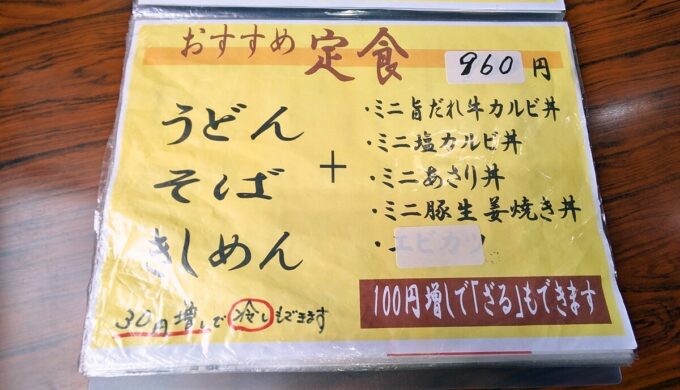 おすすめ 定食 960円
うどん
そば
きしめん
+
・ミニ旨だれ牛カルビ丼
・ミニ塩カルビ丼
・ミニあさり丼
・ミニ豚生姜焼き丼
・エビカツ
30円増しで冷しもできます
100円増しで「ざる」もできます